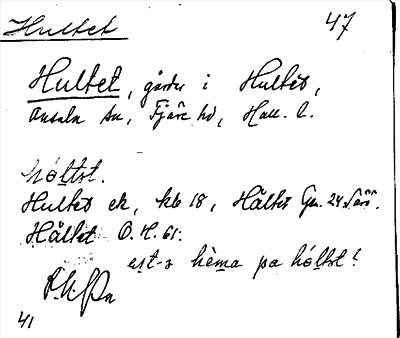 Hultet 47
Hultet, gårdar i Hultet,
Onsala sn, Fjäre hd, Hall. l.
hó̱ltət.
Hultet ek, kb 18, Hältet Gen. 24 Särö.
Hältet O. H. 61.
hèma pa hó̱ltət!
41